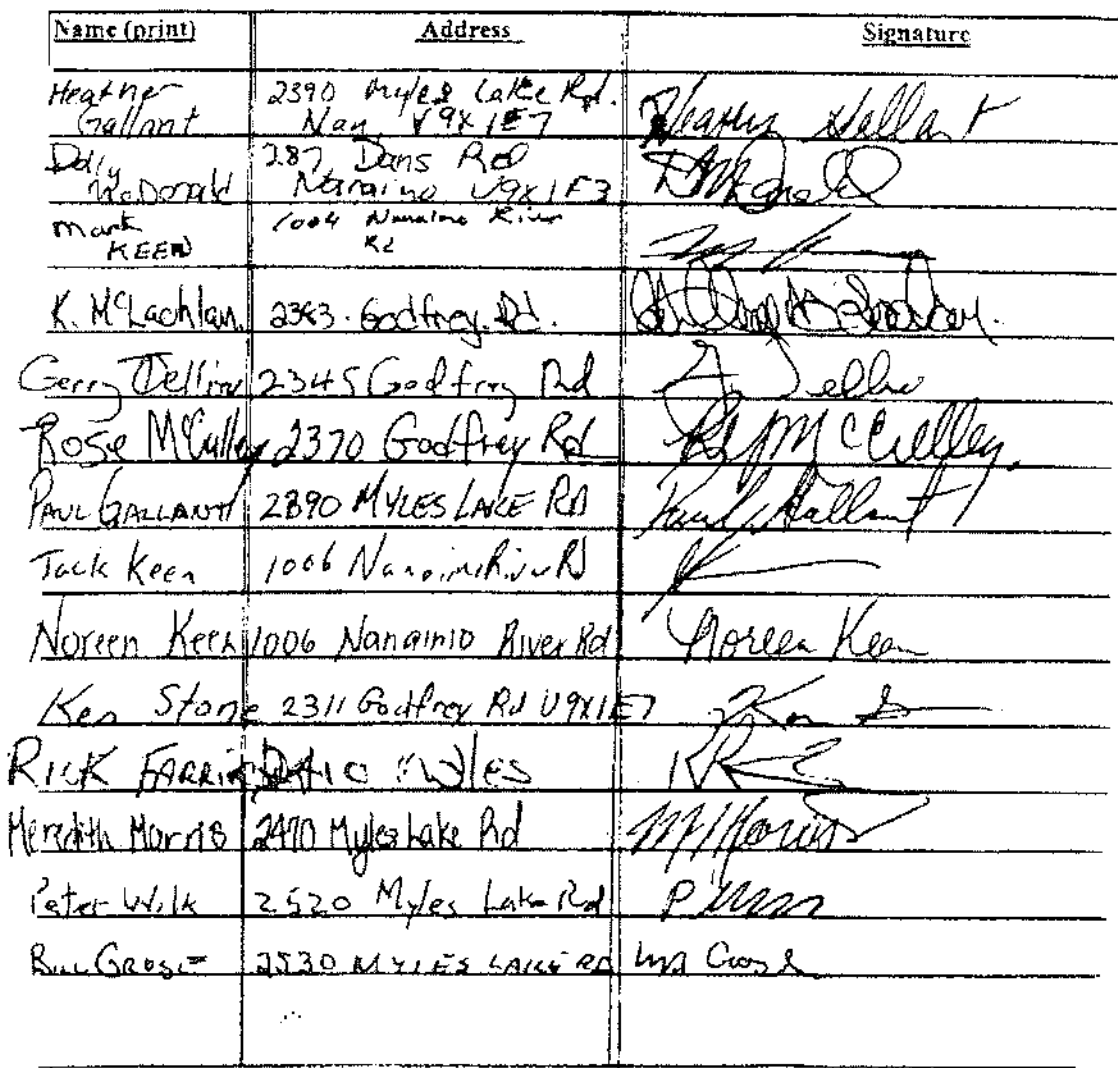 Name (print) Address Signature
Heather 2390 Myles Lake Rd.
Gallant Nan. V9X 1E7 Heather Gallant
Dolly 287 Dans Rd
McDonald Nanaimo V9X1E3 D McDonald
Mark 1004 Nanaimo River
KEEN Rd
K. McLachlan. 2383. Godfrey. Rd. McLachlan.
Gerry Tellier 2345 Godfrey Rd G Tellier
Rose McCulley 2370 Godfrey Rd R McCulley
PAUL GALLANT 2890 MYLES LAKE RD Paul Gallant
Jack Keen 1006 Nanaimo River Rd
Noreen Keen 1006 Nanaimo River Rd Noreen Keen
Ken Stone 2311 Godfrey Rd V9X1E7 Ken S
RICK MYLES
Meredith Morris 2470 Myles Lake Rd M Morris
Peter Wilk 2520 Myles Lake Rd
BILL GROSE 2530 MYLES LAKE RD